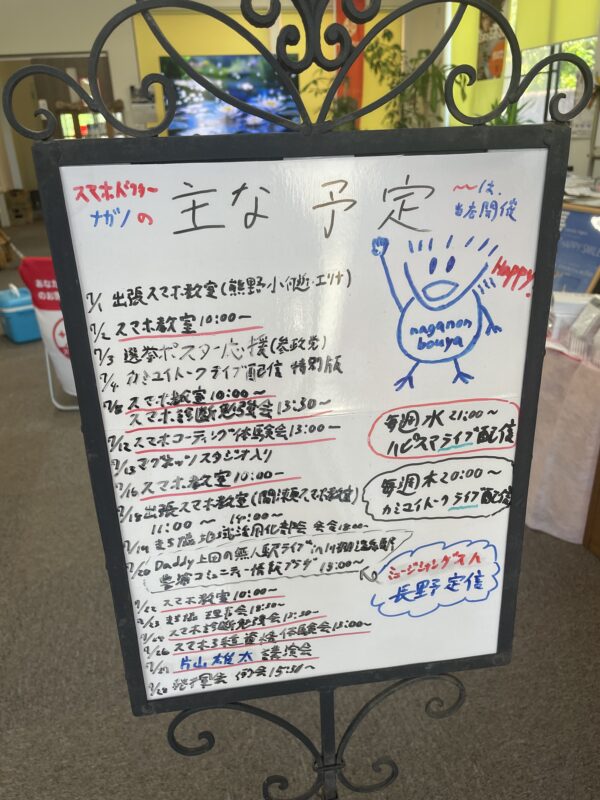 スマホドクター
ナガノの
主な予定
〜は、
当店開催
Happy!
naganon
bouya
7/1 出張スマホ教室(熊野・小・エリナ)
7/2 スマホ教室 10:00〜
7/3 選挙ポスター応援(参政党)
7/4 カミユイトークライブ配信 特別版
スマホ教室 10:00〜
スマホ診断勉強会 13:30〜
7/12 スマホコーティング体験会 13:00〜
7/13 マグネッツスタジオ入り
7/16 スマホ教室 10:00〜
7/18 出張スマホ教室(スマホ教室)
11:00 〜
7/19 まち協 地域活用化部会
7/20 Daddy上田の無人駅ライブ
豊浦コミュニティー情報プラザ 13:00〜
7/22 スマホ教室 10:00〜
7/23 まち協 理事会 18:30〜
スマホ診断勉強会 13:30〜
7/26 体験会 13:00〜
7/27 片山雄太 講演会
7/28 例会 15:30〜
毎週水 21:00〜
ハピスマライブ配信
毎週木 20:00〜
カミユイトークライブ配信
ミュージシャンズくん
長野定信